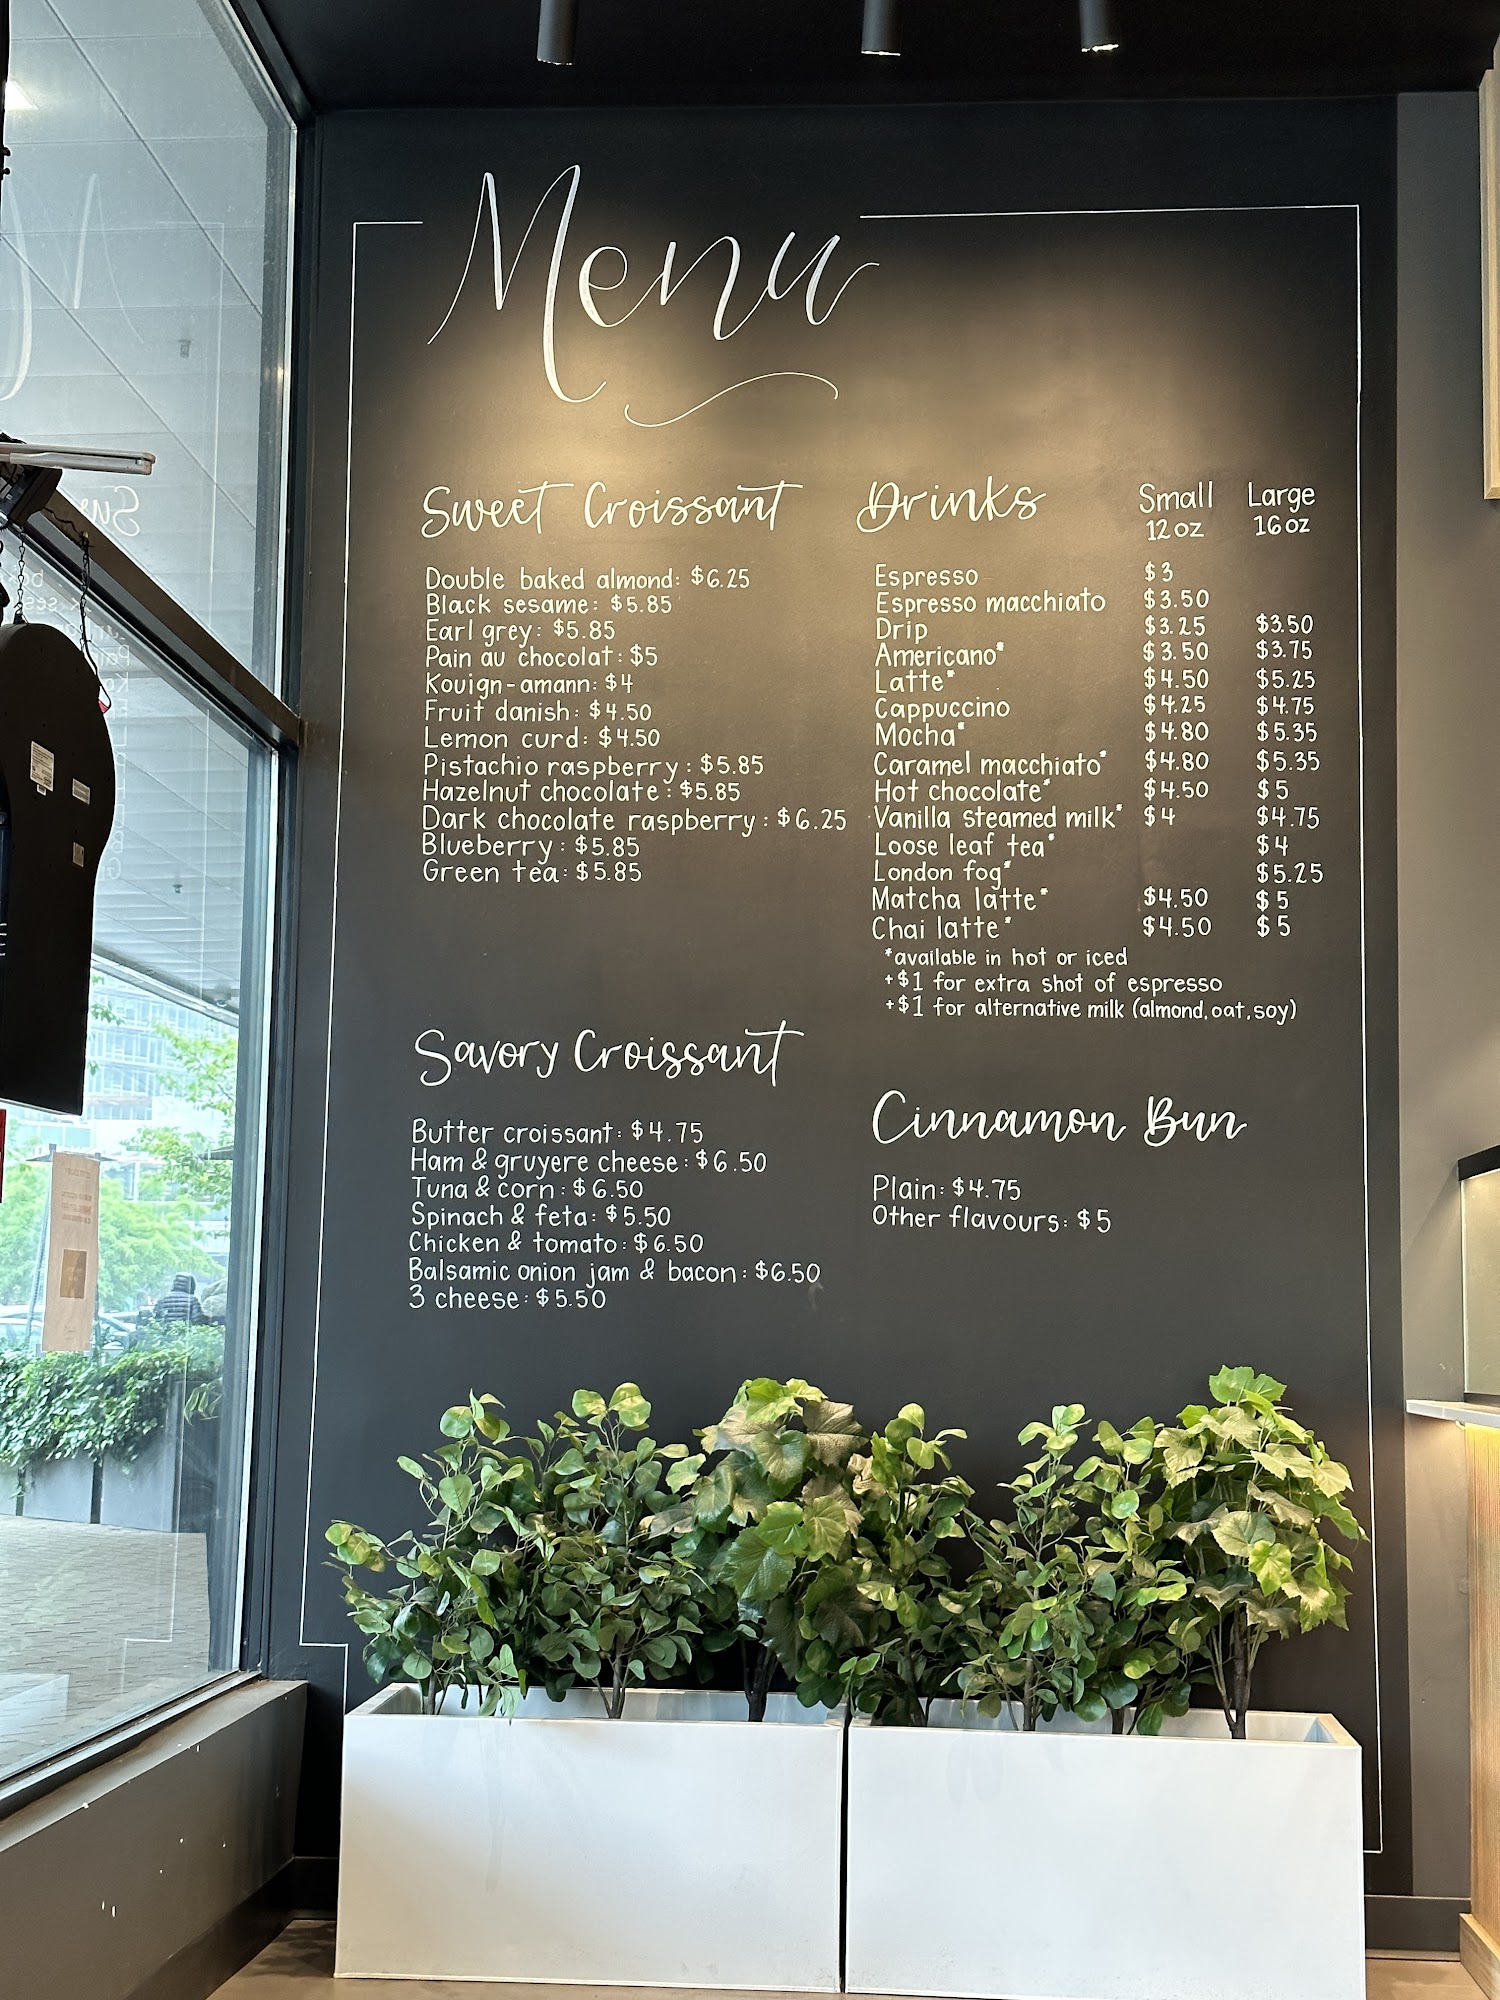 Menu
Sweet Croissant
Double baked almond: $6.25
Black sesame: $5.85
Earl grey: $5.85
Pain au chocolat: $5
Kouign-amann: $4
Fruit danish: $4.50
Lemon curd: $4.50
Pistachio raspberry: $5.85
Hazelnut chocolate: $5.85
Dark chocolate raspberry: $6.25
Blueberry: $5.85
Green tea: $5.85
Savory Croissant
Butter croissant: $4.75
Ham & gruyere cheese: $6.50
Tuna & corn: $6.50
Spinach & feta: $5.50
Chicken & tomato: $6.50
Balsamic onion jam & bacon: $6.50
3 cheese: $5.50
Drinks Small Large
12 oz 16 oz
Espresso $3
Espresso macchiato $3.50
Drip $3.25 $3.50
Americano* $3.50 $3.75
Latte* $4.50 $5.25
Cappuccino $4.25 $4.75
Mocha* $4.80 $5.35
Caramel macchiato* $4.80 $5.35
Hot chocolate* $4.50 $5
Vanilla steamed milk* $4 $4.75
Loose leaf tea* $4
London fog* $5.25
Matcha latte* $4.50 $5
Chai latte* $4.50 $5
*available in hot or iced
+$1 for extra shot of espresso
+$1 for alternative milk (almond, oat, soy)
Cinnamon Bun
Plain: $4.75
Other flavours: $5